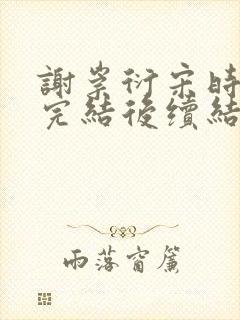 謝崇衍宋時
完結後續結
雨落窗簾